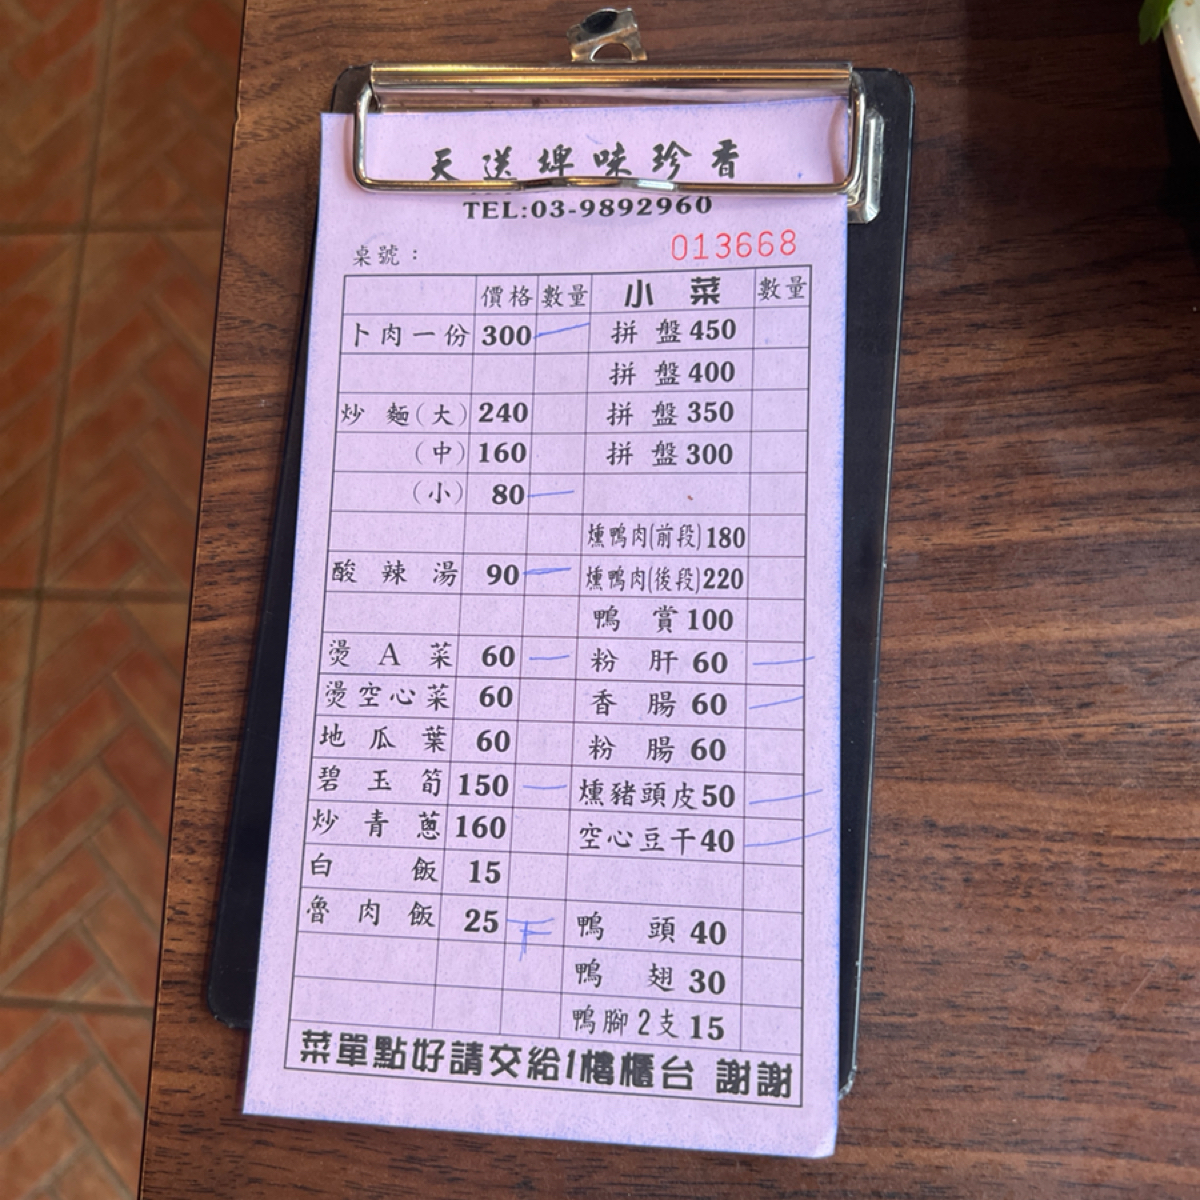 天送埤味珍香
TEL:03-9892960
桌號：
013668
價格 數量 小菜 數量
卜肉一份 300 一 拼盤 450
拼盤 400
炒麵(大) 240 拼盤 350
(中) 160 拼盤 300
(小) 80 一
燻鴨肉(前段) 180
酸辣湯 90 一 燻鴨肉(後段) 220
鴨賞 100
燙A菜 60 一 粉肝 60 一
燙空心菜 60 香腸 60 一
地瓜葉 60 粉腸 60
碧玉筍 150 一 燻豬頭皮 50 一
炒青蔥 160 空心豆干 40 一
白飯 15
魯肉飯 25 鴨頭 40
鴨翅 30
鴨腳2支 15
菜單點好請交給1樓櫃台 謝謝